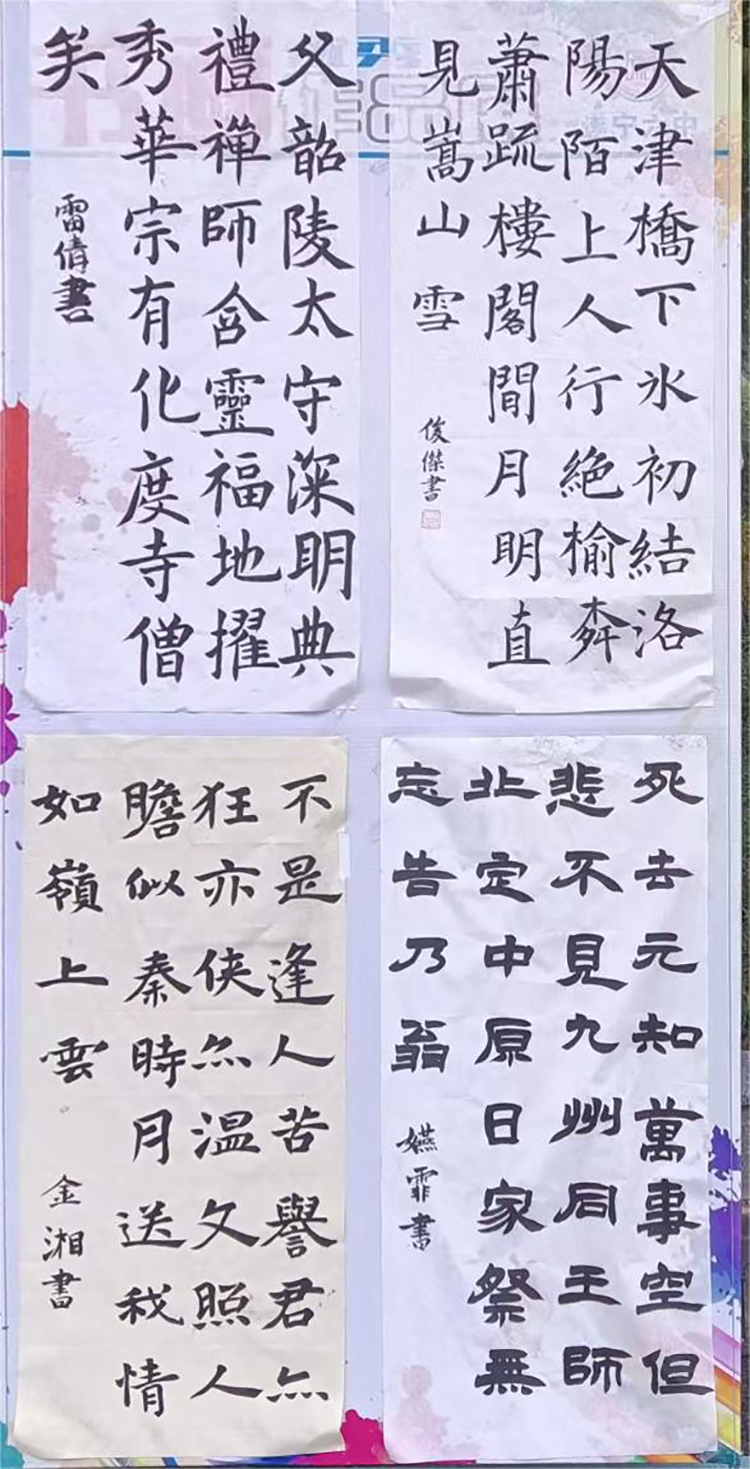 天津橋下氷初結洛
陽陌上人行絶榆
蕭疏樓閣閒月明直
見嵩山雪
俊傑書
父韶陵太守深明典
禮禪師含靈福地擢
秀華宗有化度寺僧
雷倩書
死去元知萬事空但
悲不見九州同王師
北定中原日家祭無
忘告乃翁
嬿霏書
不是逢人苦譽君亦
狂亦俠亦温文照人
膽似秦時月送我情
如嶺上雲
金湘書